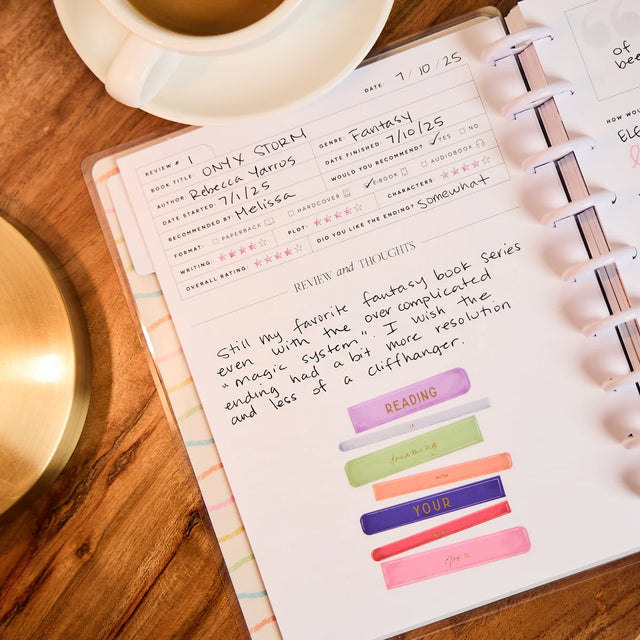 DATE: 7/10/25
REVIEW # 1
BOOK TITLE: ONYX STORM GENRE: Fantasy
AUTHOR Rebecca Yarros DATE FINISHED: 7/10/25
DATE STARTED: 7/1/25 WOULD YOU RECOMMEND? ✓ YES □ NO
RECOMMENDED BY Melissa
FORMAT: □ PAPERBACK □ HARDCOVER ✓ EBOOK □ AUDIOBOOK
WRITING: ★★★★☆ PLOT: ★★★★☆ CHARACTERS: ★★★★☆
OVERALL RATING: ★★★★☆ DID YOU LIKE THE ENDING? Somewhat
REVIEW and THOUGHTS
Still my favorite fantasy book series
even with the over complicated
"magic system." I wish the
ending had a bit more resolution
and less of a cliffhanger.
READING
IS
dreaming
WITH
YOUR
“
of
bee
HOW WOU
ELF